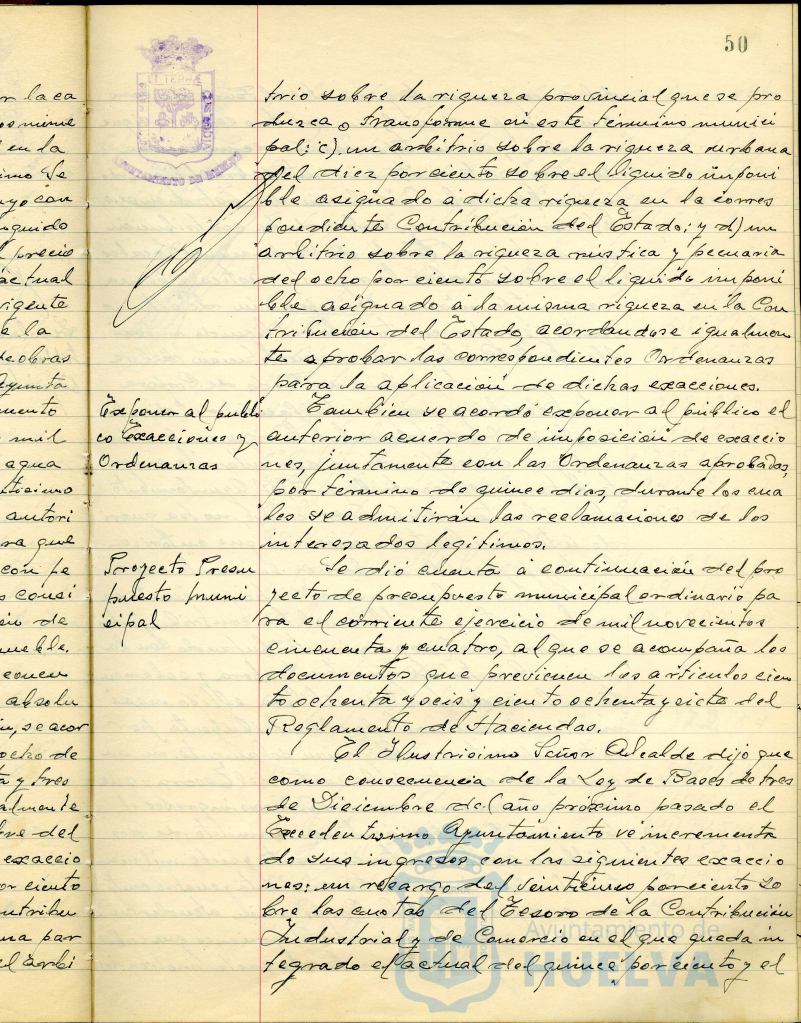 50
trio sobre la riqueza provincial que se pro
duzca o transforme en este término munici
pal: c) un arbitrio sobre la riqueza urbana
del diez por ciento sobre el líquido imponi
ble asignado á dicha riqueza en la corres
pondiente Contribución del Estado; y d) un
arbitrio sobre la riqueza rústica y pecuaria
del ocho por ciento sobre el líquido imponi
ble asignado á la misma riqueza en la Con
tribución del Estado, acordandose igualmen
te aprobar las correspondientes Ordenanzas
para la aplicación de dichas exacciones.
Exponer al públi
co Exacciones y
Ordenanzas
Tambien se acordó exponer al público el
anterior acuerdo de imposición de exaccio
nes, juntamente con las Ordenanzas aprobadas,
por término de quince dias, durante los cua
les se admitirán las reclamaciones de los
interesados legítimos.
Proyecto Presu
puesto muni
cipal
Se dió cuenta á continuación del pro
yecto de presupuesto municipal ordinario pa
ra el corriente ejercicio de mil novecientos
cincuenta y cuatro, al que se acompaña los
documentos que previenen los articulos cien
to ochenta y seis y ciento ochenta y siete del
Reglamento de Haciendas.
El Ilustrisimo Señor Alcalde dijo que
como consecuencia de la Ley de Bases de tres
de Diciembre del año próximo pasado el
Excelentisimo Ayuntamiento ve incrementa
do sus ingresos con las siguientes exaccio
nes: un recargo del veinticinco por ciento so
bre las cuotas del Tesoro de la Contribución
Industrial y de Comercio en el que queda in
tegrado el actual del quince por ciento y el
r la ca
en la
imo Se
yo con
quido
l precio
actual
vigente
e la
de obras
Ayunta
mento
mil
agua
autori
ra que
con pe
consi
ón de
mueble.
absolu
se acor
ocho de
ta y tres
almente
bre del
exaccio
or ciento
ontribu
na par
el Arbi
AYUNTAMIENTO DE HUELVA
Ayuntamiento de
HUELVA